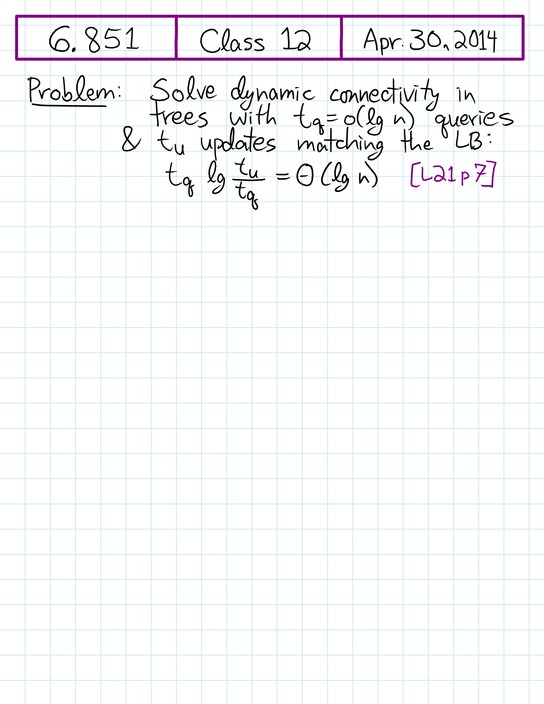 6.851 Class 12 Apr. 30, 2014
Problem: Solve dynamic connectivity in
trees with t_q = o(lg n) queries
& t_u updates matching the LB:
t_q lg t_u/t_q = Θ(lg n) [L21 p7]